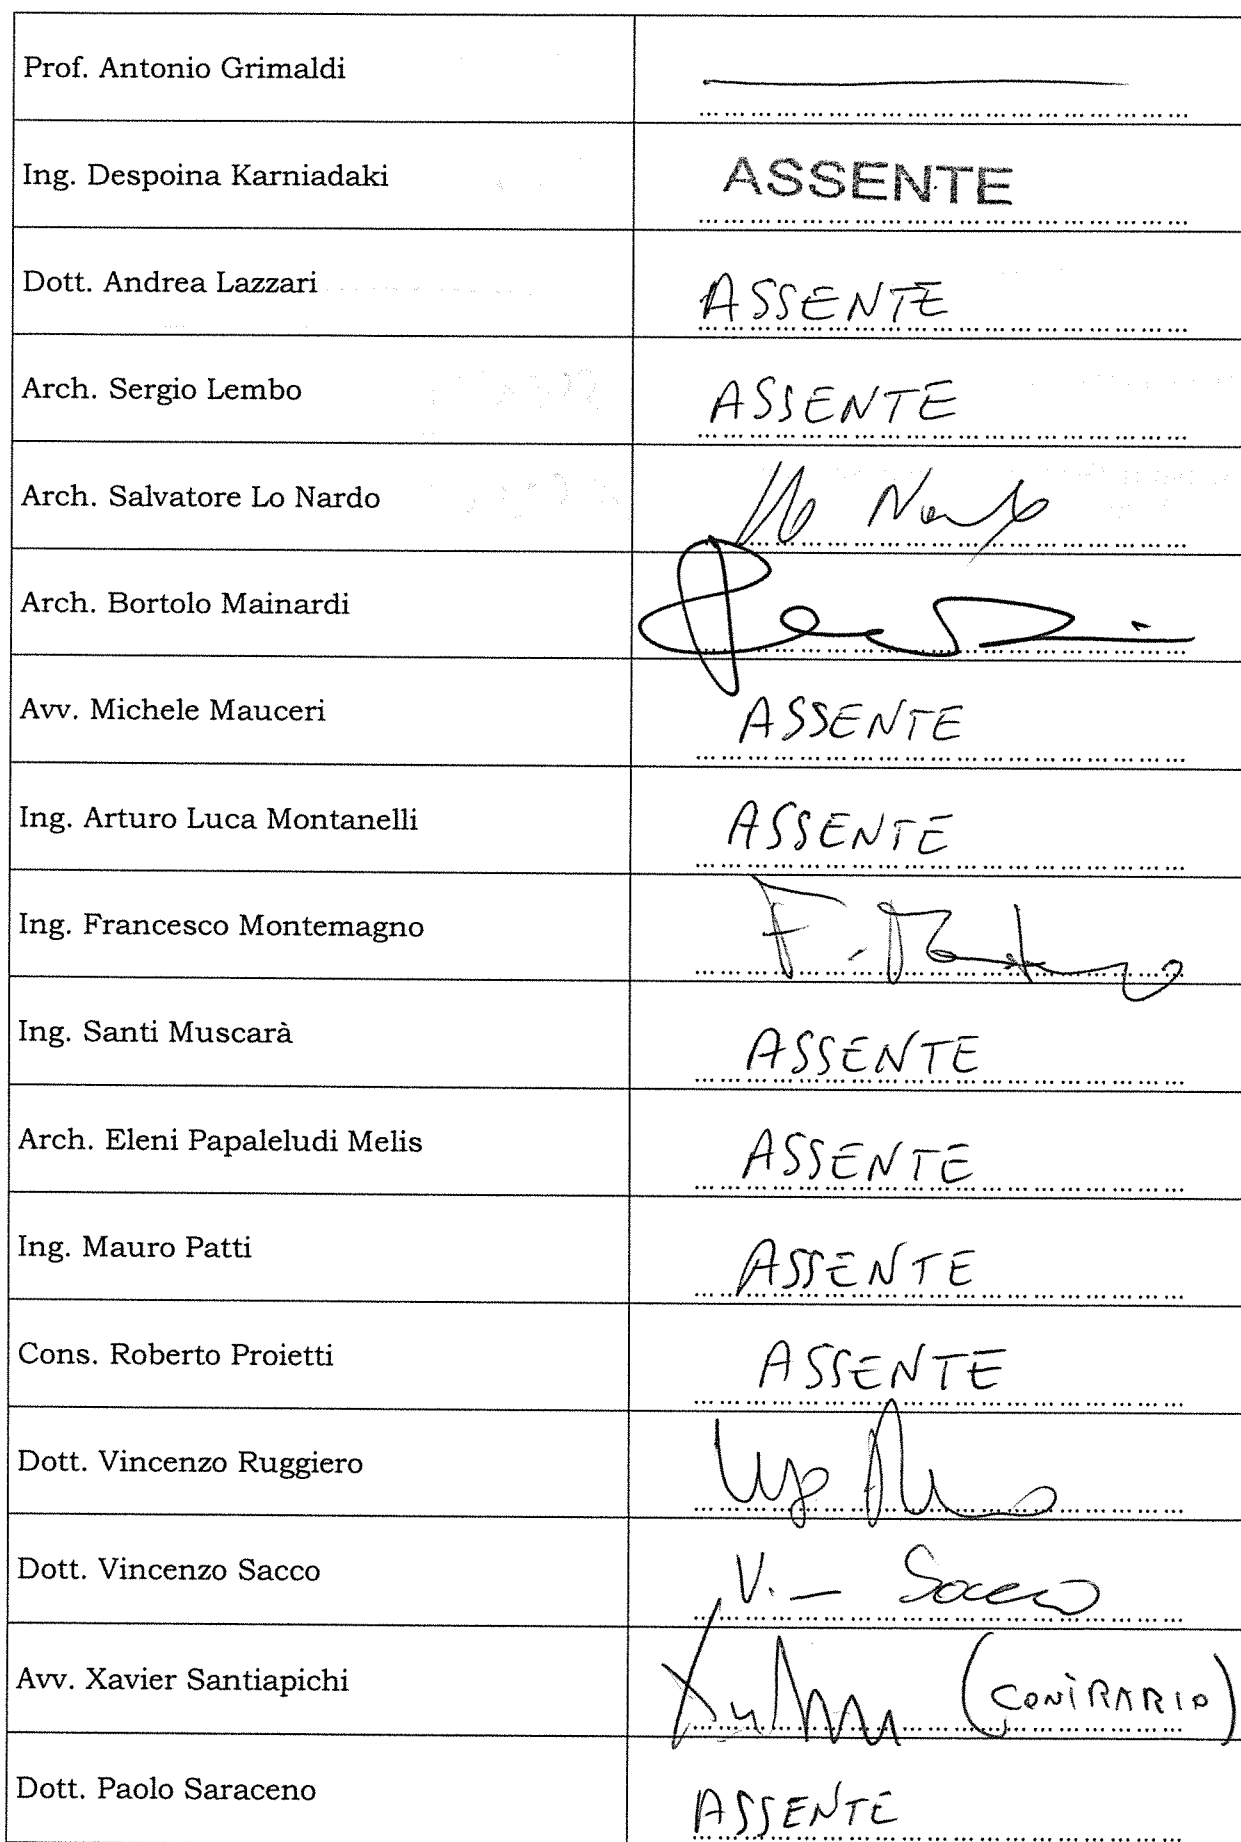 Prof. Antonio Grimaldi
Ing. Despoina Karniadaki ASSENTE
Dott. Andrea Lazzari ASSENTE
Arch. Sergio Lembo ASSENTE
Arch. Salvatore Lo Nardo Lo Nardo
Arch. Bortolo Mainardi
Avv. Michele Mauceri ASSENTE
Ing. Arturo Luca Montanelli ASSENTE
Ing. Francesco Montemagno
Ing. Santi Muscarà ASSENTE
Arch. Eleni Papaleludi Melis ASSENTE
Ing. Mauro Patti ASSENTE
Cons. Roberto Proietti ASSENTE
Dott. Vincenzo Ruggiero
Dott. Vincenzo Sacco V. Sacco
Avv. Xavier Santiapichi (CONTRARIO)
Dott. Paolo Saraceno ASSENTE